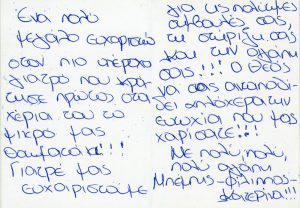 Ένα πολύ
μεγάλο ευχαριστώ
στον πιο υπέροχο
γιατρό που κρά-
τησε πρώτος στα
χέρια του το
μικρό μας
θαυματάκι!!!
Γιατρέ μας
Ευχαριστούμε
για τις πολύτιμες
συμβουλές σας,
τη στήριξή σας
και την αγάπη
σας!!! Ο Θεός
να σας ανταποδί-
δει απλόχερα την
ευτυχία που μας
χαρίσατε!!!
Με πολύ, πολύ,
πολύ αγάπη
Μπέμης-Φίλιππος-
Κατερίνα!!!